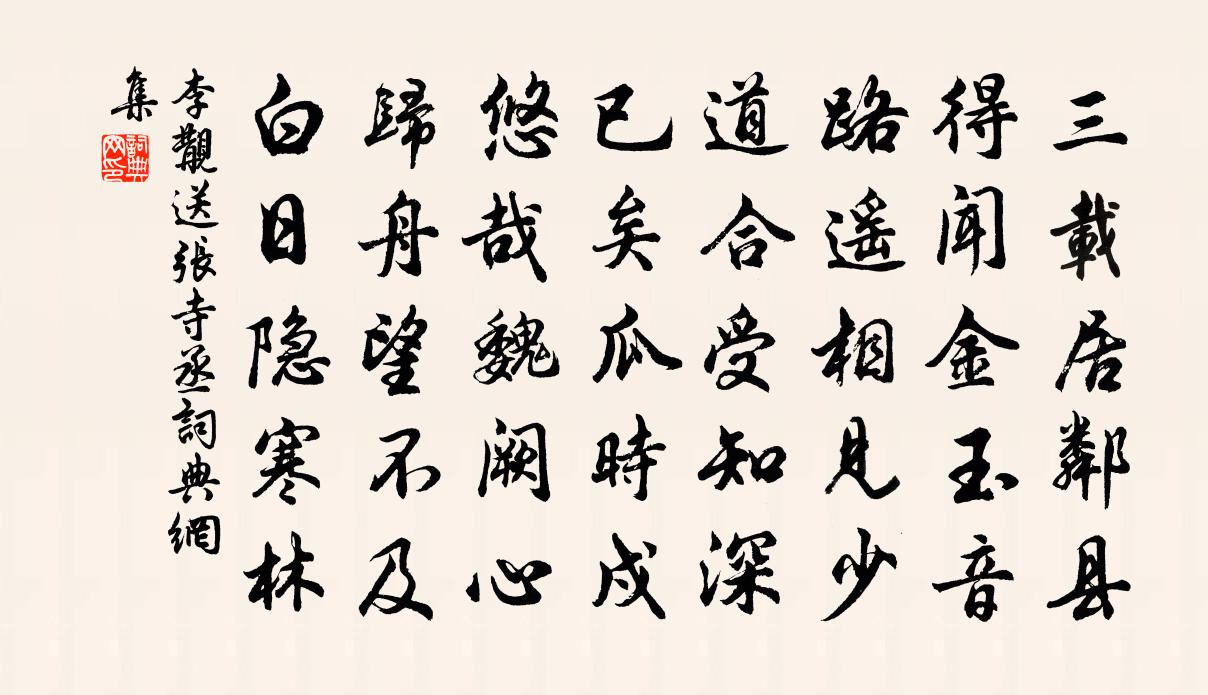 三載居鄰县
得闻金玉音
路遥相見少
道合受知深
已矣瓜時戍
悠哉魏阙心
歸舟望不及
白日隐寒林
李覯送張寺丞詞典網
集
詞典
网印